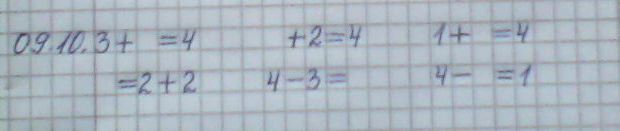 09.10. 3+ =4 +2=4 1+ =4
=2+2 4-3= 4- =1